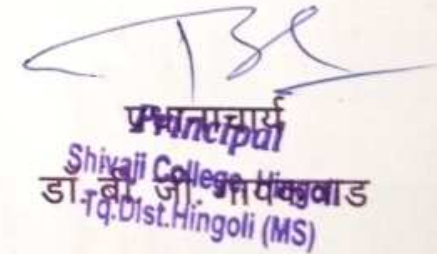 प्रधानाचार्य
Principal
Shivaji College, Hingoli
डॉ. बी. जी. गायकवाड
Tq.Dist.Hingoli (MS)